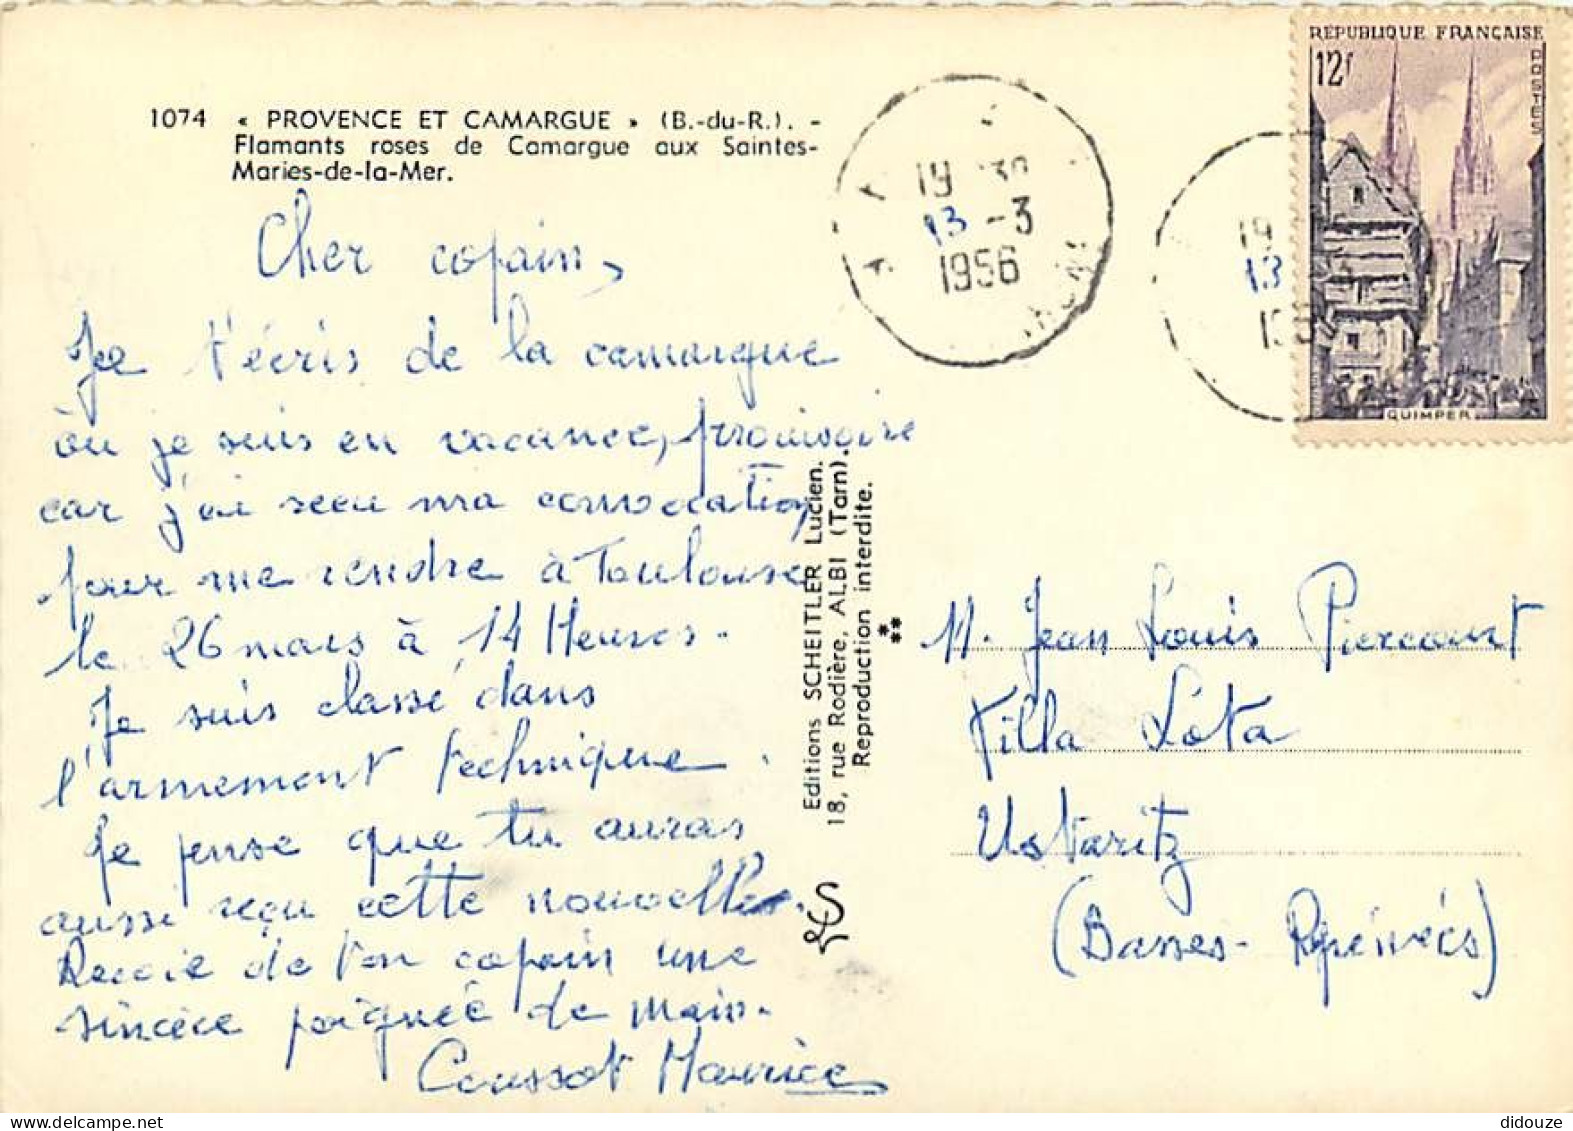 1074 « PROVENCE ET CAMARGUE » (B.-du-R.). -
Flamants roses de Camargue aux Saintes-
Maries-de-la-Mer.
Cher copain,
Je t'écris de la camargue
ou je suis en vacance, provisoire
car j'ai recu ma convocation
pour me rendre à Toulouse
le 26 mars à 14 Heures.
Je suis classé dans
l'armement technique.
Je pense que tu auras
aussi reçu cette nouvelle.
Recoie de ton copain une
sincère poignée de main.
Coussot Maurice
Editions SCHEITLER Lucien.
18, rue Rodière, ALBI (Tarn).
Reproduction interdite.
19 30
13 - 3
1956
19
13
RÉPUBLIQUE FRANÇAISE
12f
POSTES
QUIMPER
M. Jean Louis Piercourt
Villa Lota
Ustaritz
(Basses-Pyrénées)
didouze / Delcampe.net